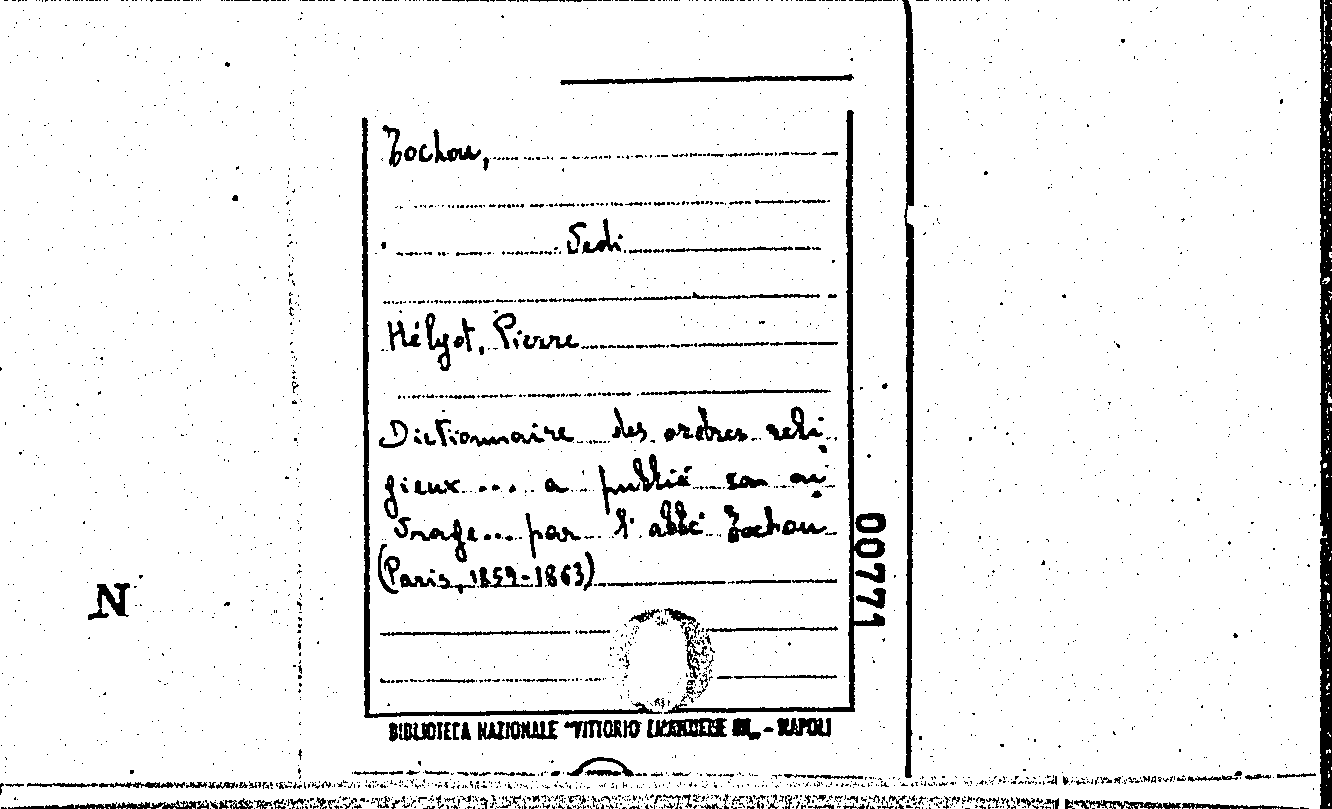 Zochou,
Vedi
Hélyot, Pierre
Dictionnaire des ordres reli
gieux... a publié son ou
vrage... par l'abbé Zochou
(Paris, 1859-1863)
00771
N
BIBLIOTECA NAZIONALE "VITTORIO EMANUELE III" - NAPOLI